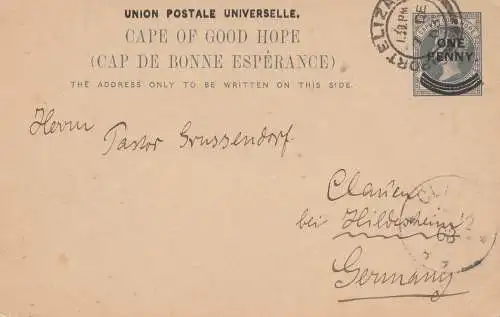 UNION POSTALE UNIVERSELLE.
CAPE OF GOOD HOPE
(CAP DE BONNE ESPÉRANCE)
THE ADDRESS ONLY TO BE WRITTEN ON THIS SIDE.
PORT ELIZA
DE
ONE
PENNY
Herrn Pastor Grussendorf
Clauen
bei Hildesheim
Germany